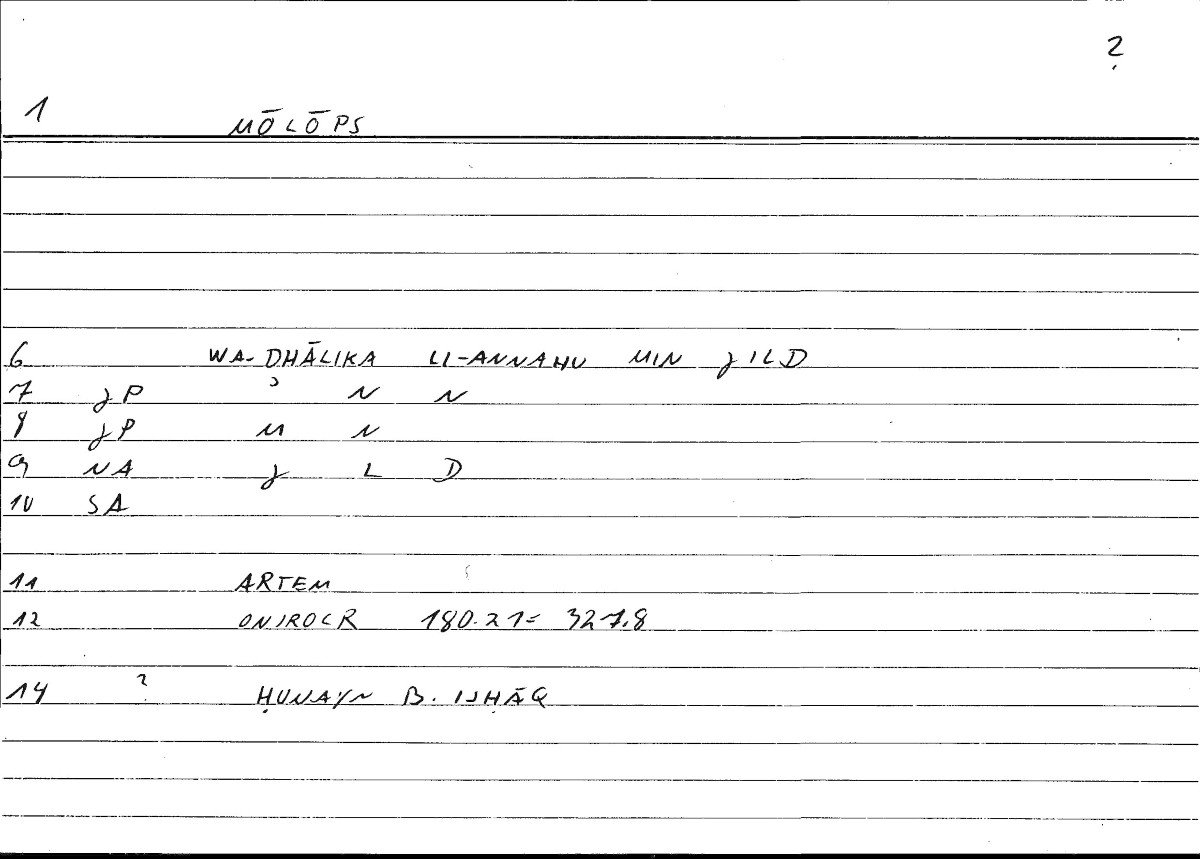 ?
1 MŌLŌPS
6 WA-DHĀLIKA LI-ANNAHU MIN JILD
7 JP ʾ N N
8 JP M N
9 NA J L D
10 SA
11 ARTEM
12 ONIROCR 180.21= 327.8
14 ? ḤUNAYN B. ISḤĀQ